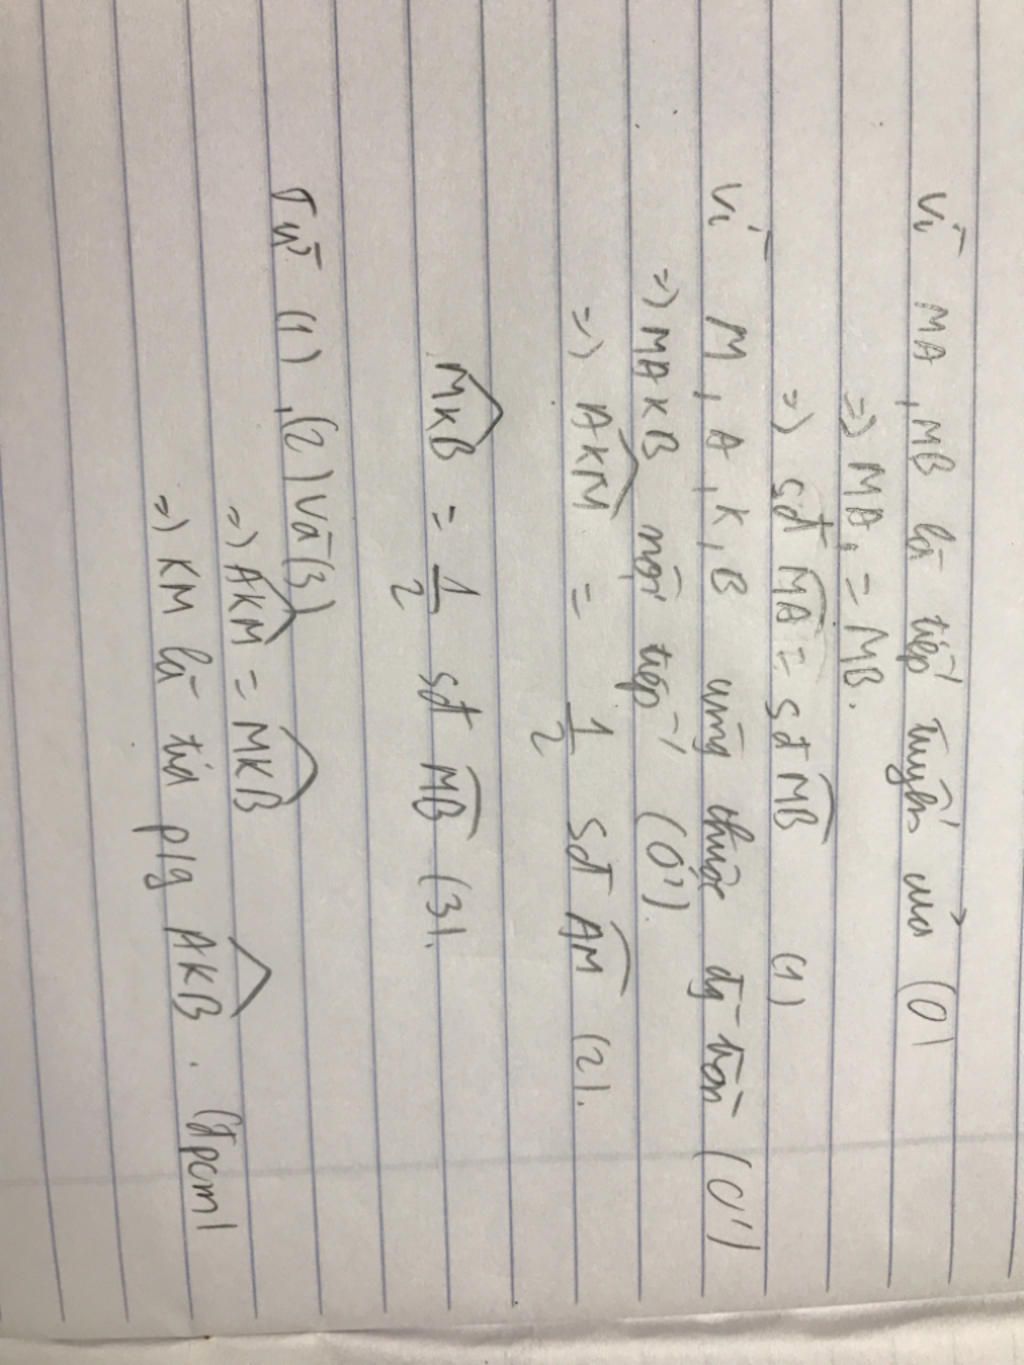 Vì MA, MB là tiếp tuyến của (O)
=) MA, = MB.
=) sđ MA = sđ MB (1)
Vì M, A, K, B cùng thuộc đg tròn (O')
=) MAKB nội tiếp (O').
=) AKM = 1/2 sđ AM (2).
MKB = 1/2 sđ MB (3).
Từ (1), (2) và (3)
=) AKM = MKB
=) KM là tia p/g AKB. (đpcm)